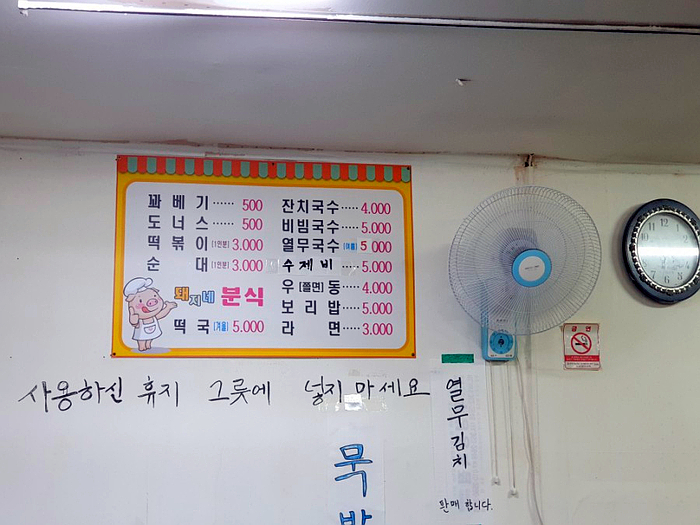 꽈 베 기 ······ 500
도 너 스 ······ 500
떡 볶 이 (1인분) 3.000
순 대 (1인분) 3.000
돼지네 분식
떡 국 (겨울) 5.000
잔치국수 ····· 4.000
비빔국수 ····· 5.000
열무국수 (여름) 5 000
수 제 비 ····· 5.000
우 [쫄면] 동 ···· 4.000
보 리 밥 ····· 5.000
라 면 ···· 3.000
금 연
사용하신 휴지 그릇에 넣지 마세요
열무김치
판매 합니다.
묵